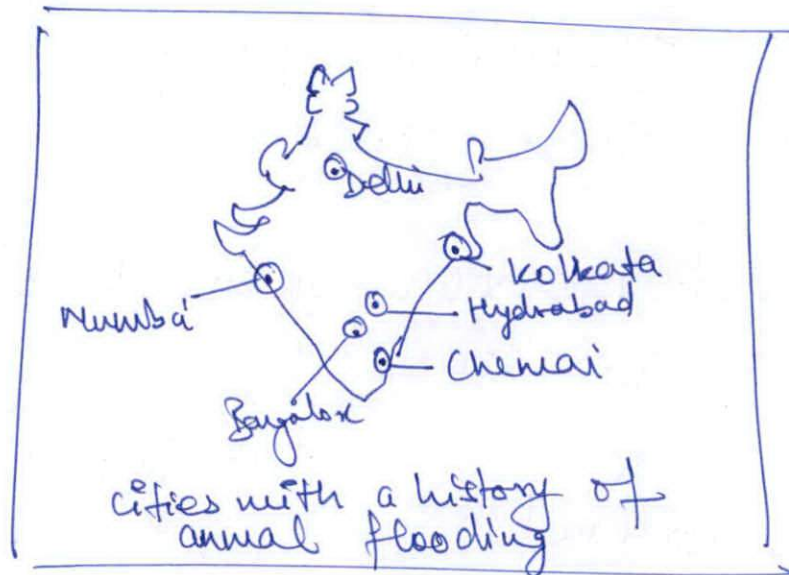 Delhi
Kolkata
Mumbai
Hydrabad
Chennai
Bangalore
cities with a history of
annual flooding